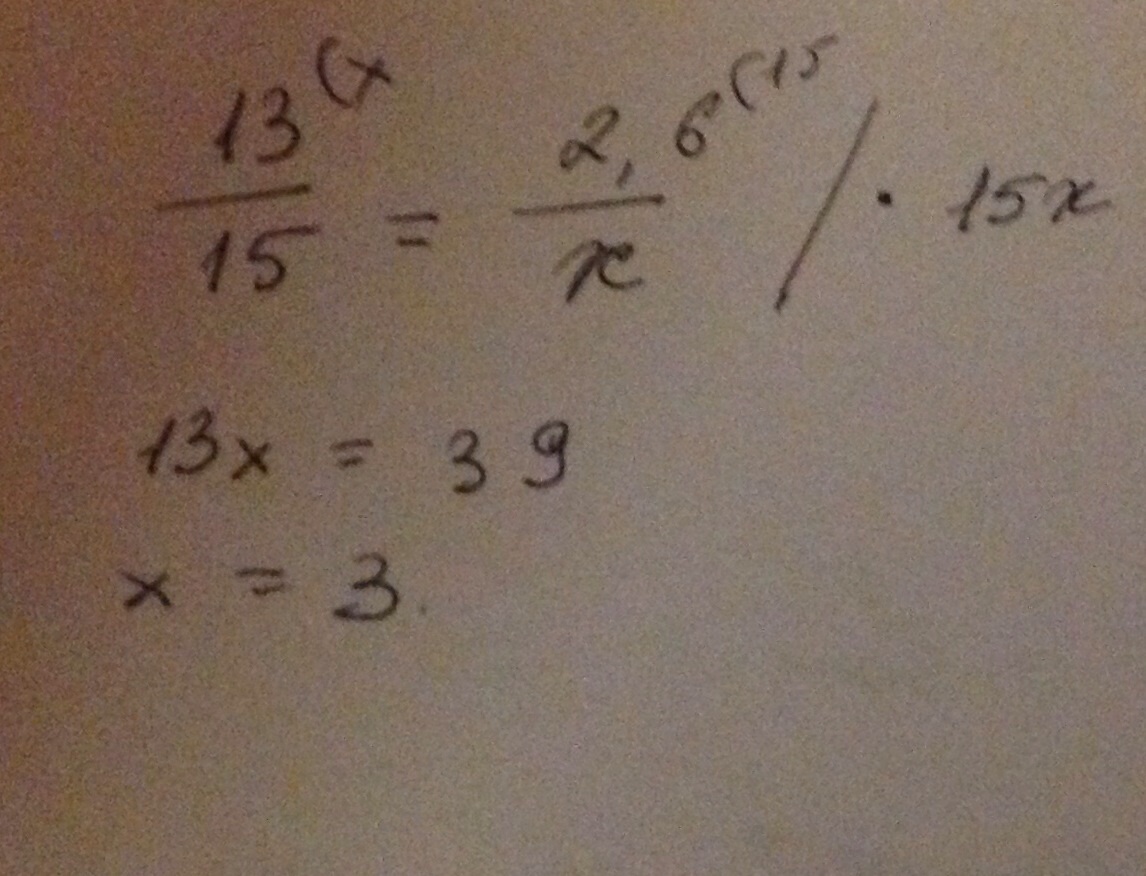 13(x / 15 = 2,6(15 / x / · 15x
13x = 39
x = 3.